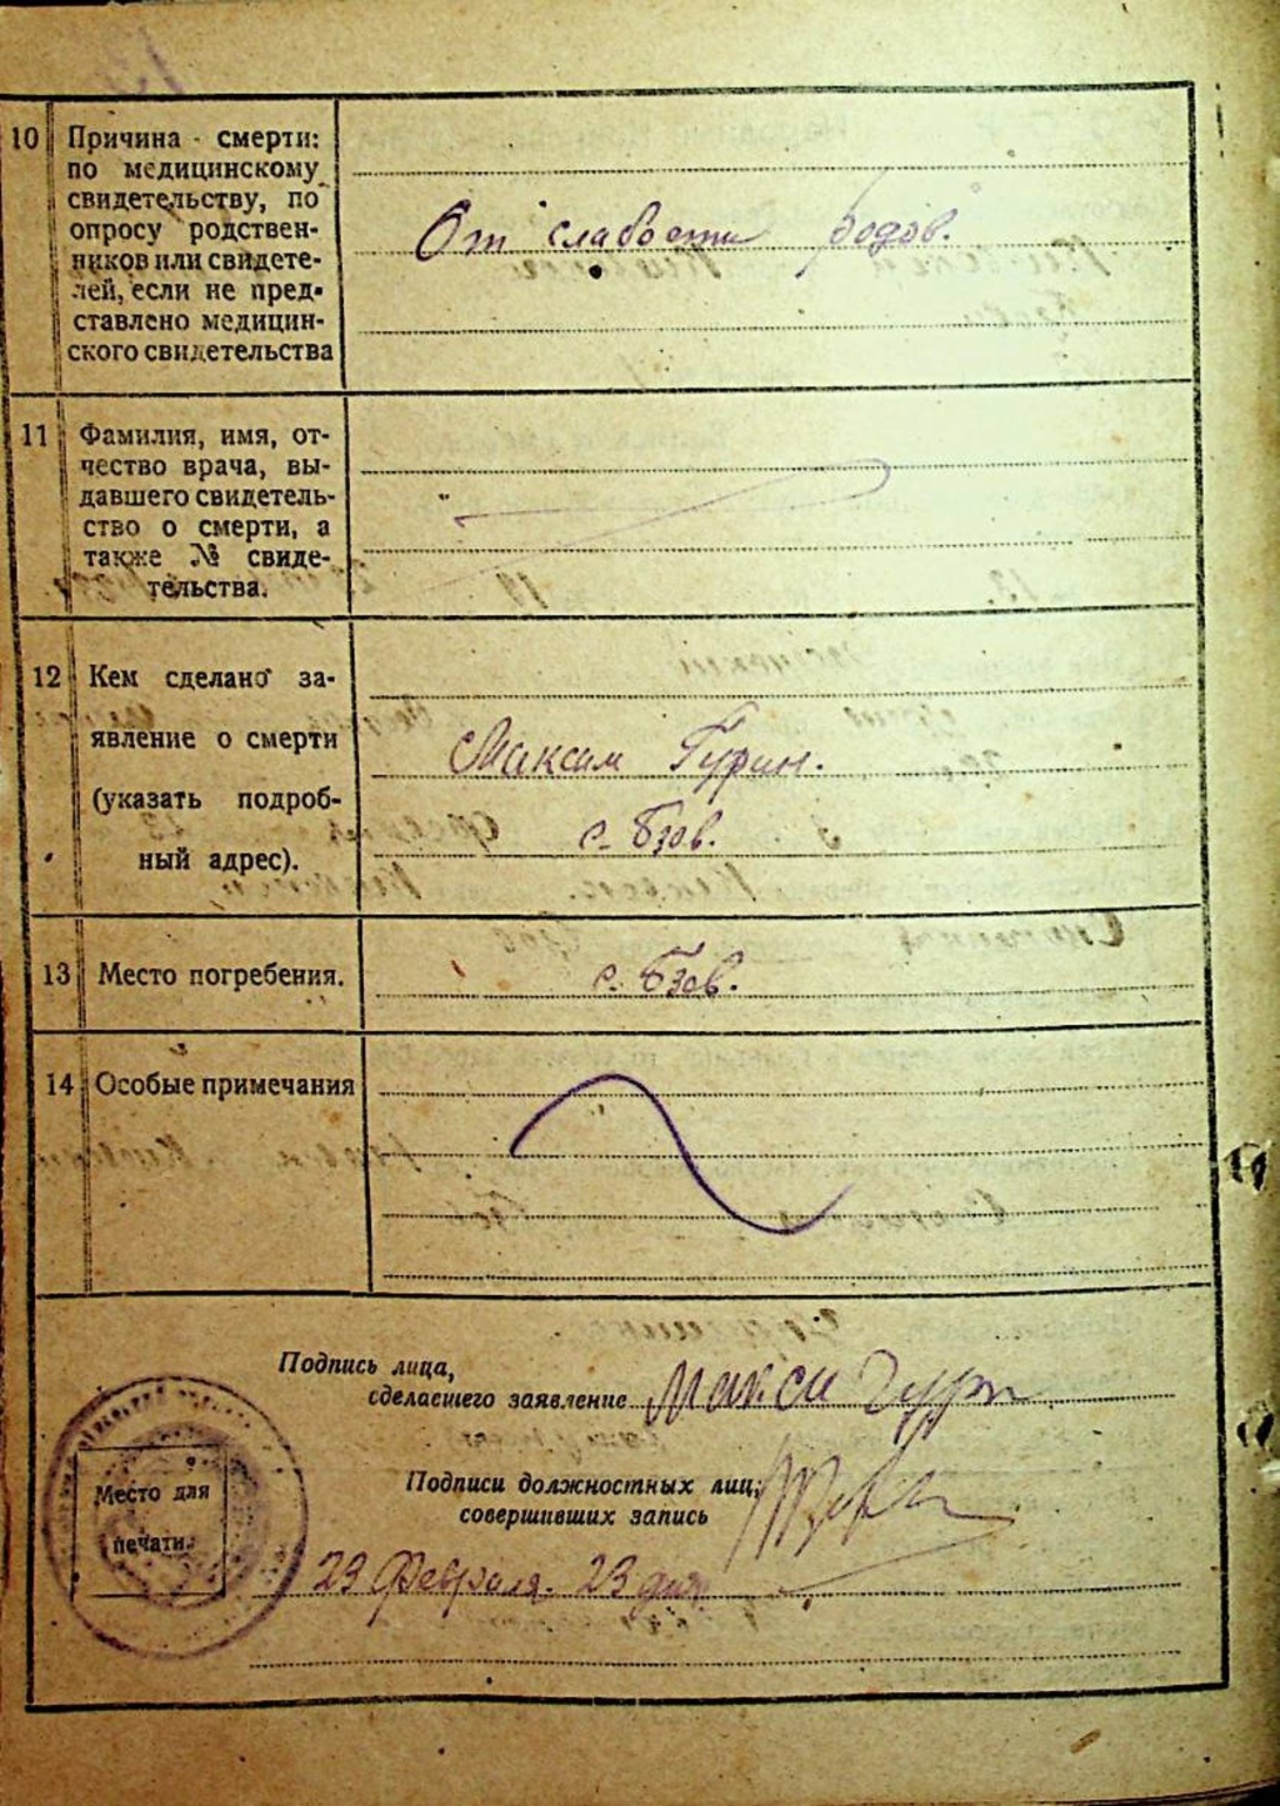 10 Причина - смерти:
по медицинскому
свидетельству, по
опросу родствен-
ников или свидете-
лей, если не пред-
ставлено медицин-
ского свидетельства
От слабости родов.
11 Фамилия, имя, от-
чество врача, вы-
давшего свидетель-
ство о смерти, а
также № свиде-
тельства.
12 Кем сделано за-
явление о смерти
(указать подроб-
ный адрес).
Максим Гурин.
с. Бзов.
13 Место погребения.
с. Бзов.
14 Особые примечания
Подпись лица,
сделавшего заявление Макси Гурн
Подписи должностных лиц,
совершивших запись
Место для
печати.
23 Февраля. 23 дня